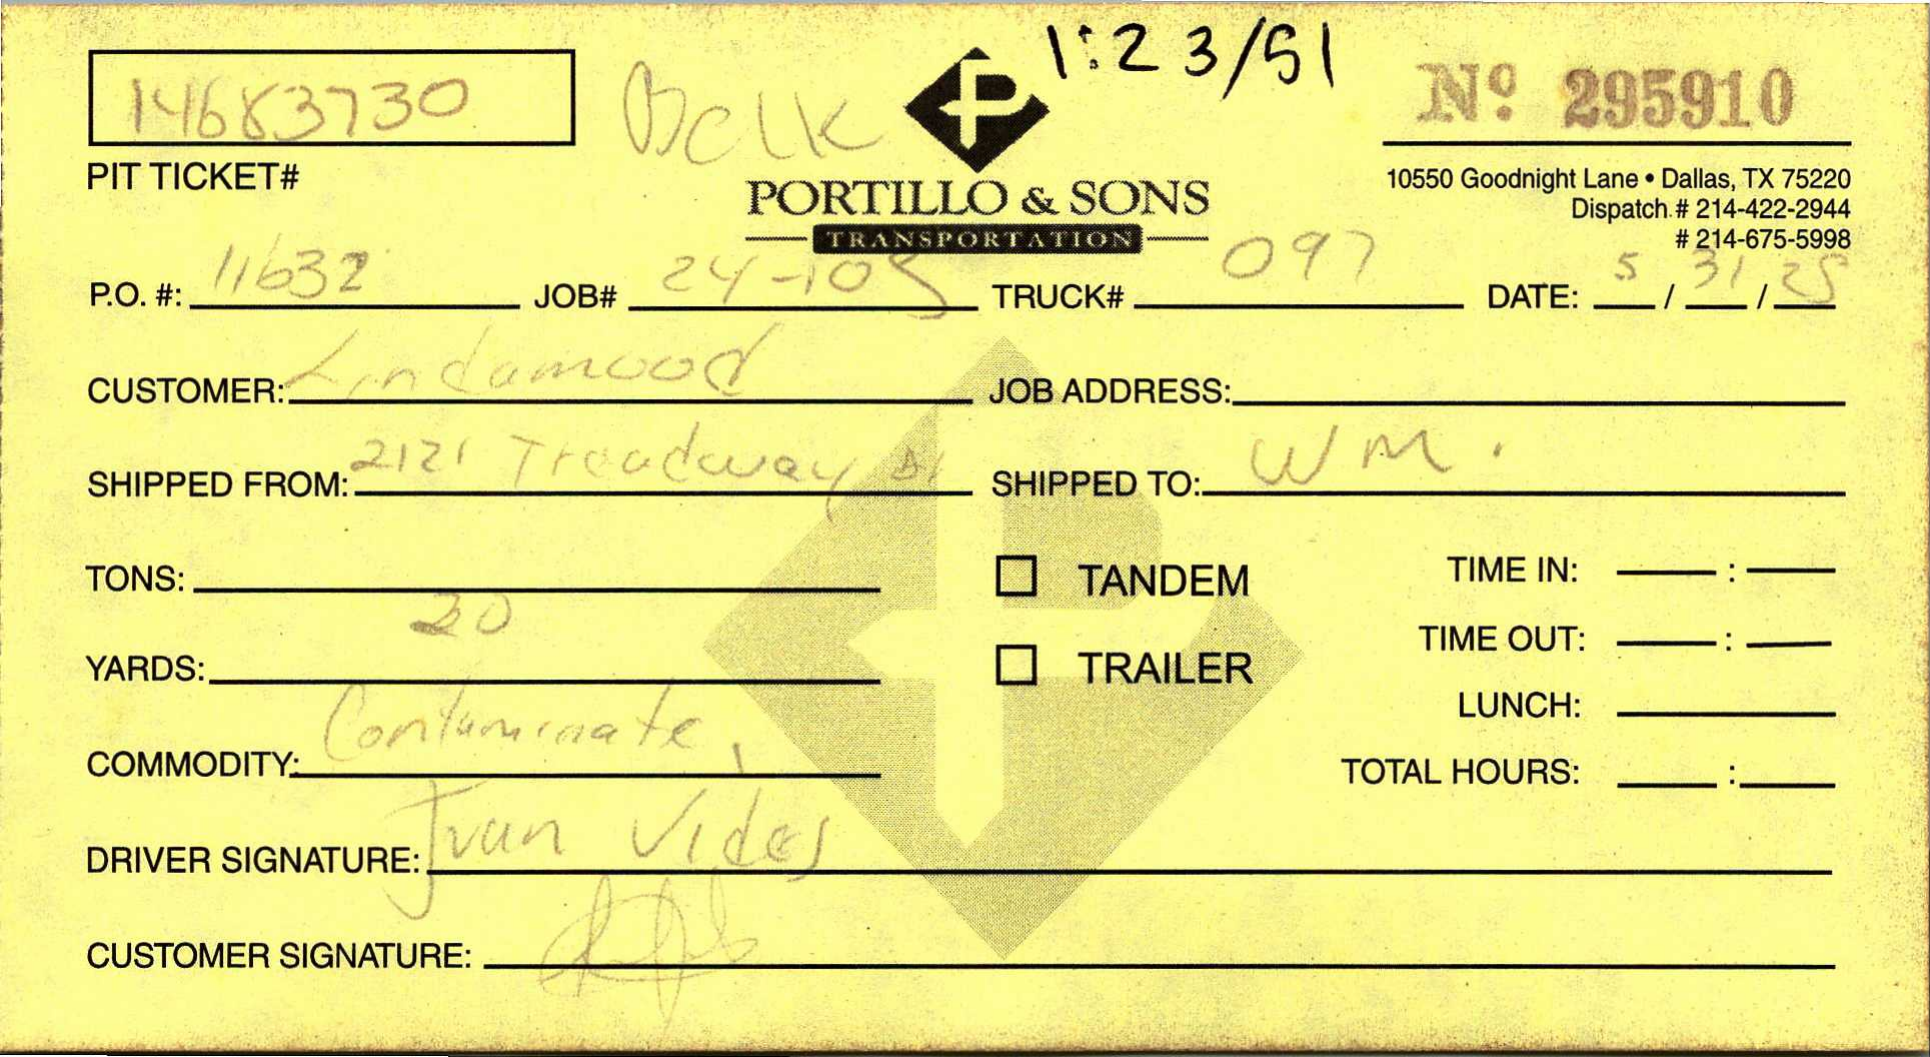 1:23/51
14683730
Belk
Nº 295910
PIT TICKET#
PORTILLO & SONS
TRANSPORTATION
10550 Goodnight Lane • Dallas, TX 75220
Dispatch # 214-422-2944
# 214-675-5998
P.O. #: 11632 JOB# 24-105 TRUCK# 097 DATE: 5 / 31 / 25
CUSTOMER: Lindamood JOB ADDRESS:
SHIPPED FROM: 2121 Treadway SHIPPED TO: WM.
TONS: TANDEM TIME IN: :
20
YARDS: TRAILER TIME OUT: :
LUNCH:
COMMODITY: Contaminate, TOTAL HOURS: :
DRIVER SIGNATURE: Ivan Vides
CUSTOMER SIGNATURE: